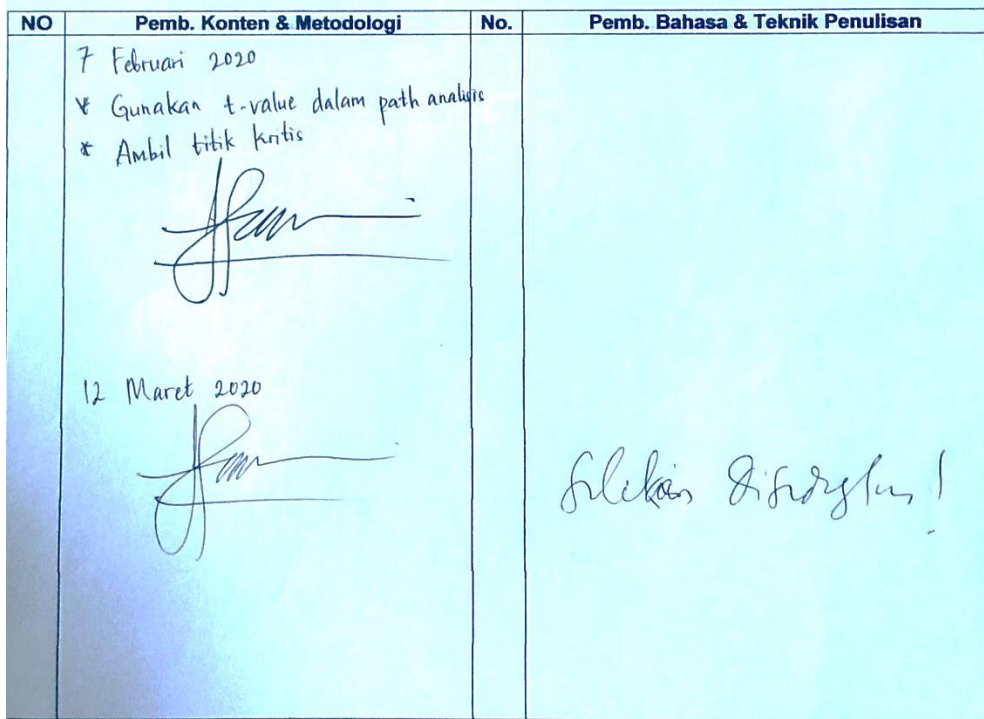 NO Pemb. Konten & Metodologi No. Pemb. Bahasa & Teknik Penulisan
7 Februari 2020
* Gunakan t-value dalam path analisis
* Ambil titik kritis
12 Maret 2020
Silakan Disidangkan!